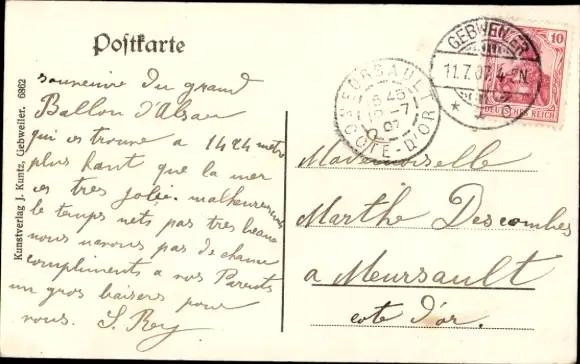 Postkarte
souvenire du grand
Ballon d'Alsace
qui es trouve a 1424 metre
plus haut que la mer
es tres jolie. malheureusement
le temps nets pas tres beau
nous navons pas de chance
compliments a nos Parents
un gros baisers pour
vous. S. Rey
Kunstverlag J. Kuntz, Gebweiler. 6862
GEBWEILER
11.7.07. 4-5N
* c
MEURSAULT
15 45
12-7
07
COTE-D'OR
10
DEUTSCHES REICH
Mademoiselle
Marthe Descombes
a Meursault
cote d'or.